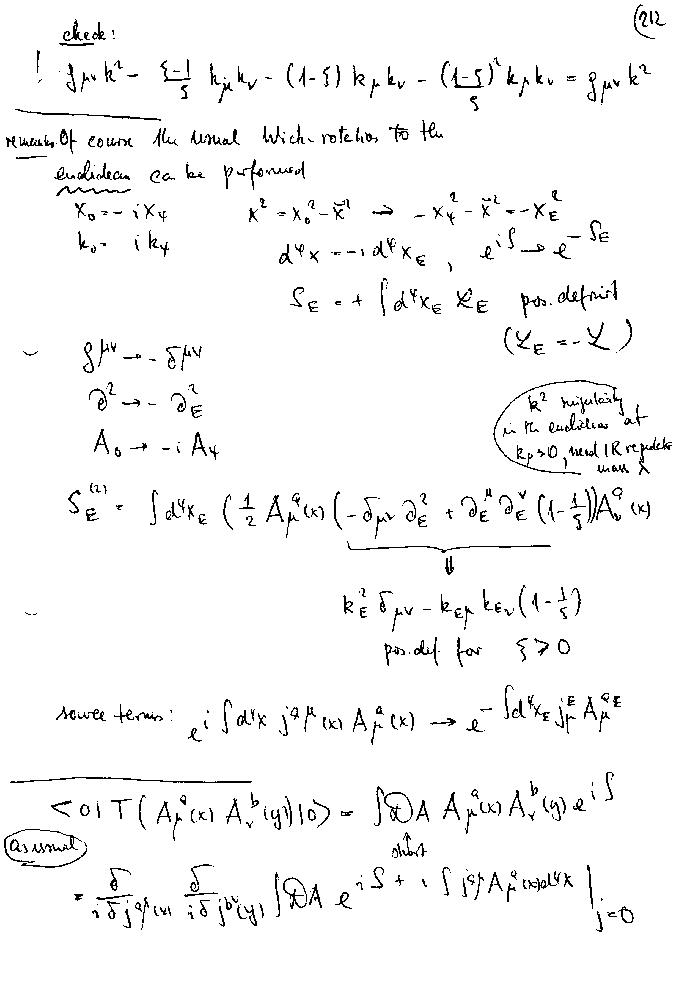 (212
check:
! g_{μν} k² - \frac{ξ-1}{ξ} k_μ k_ν - (1-ξ) k_μ k_ν - \frac{(1-ξ)²}{ξ} k_μ k_ν = g_{μν} k²
remarks: Of course the usual Wick-rotation to the
euclidean can be performed
x₀ = -i x₄   x² = x₀² - \vec{x}² → -x₄² - \vec{x}² = -x_E²
k₀ = i k₄   d⁴x = -i d⁴x_E , e^{iS} → e^{-S_E}
S_E = + ∫ d⁴x_E ℒ_E pos. definit
(ℒ_E = -ℒ)
g^{μν} → -δ^{μν}
∂² → -∂_E²
A₀ → -i A₄
k² singularity
in the euclidean at
k_E=0, need IR regulator
mass λ
S_E^{(2)} = ∫ d⁴x_E ( \frac{1}{2} A_μ^a(x) ( -δ_{μν} ∂_E² + ∂_E^μ ∂_E^ν (1-\frac{1}{ξ})) A_ν^a(x)
⇓
k_E² δ_{μν} - k_{Eμ} k_{Eν} (1-\frac{1}{ξ})
pos. def. for ξ > 0
source terms: e^{i ∫ d⁴x j^{aμ}(x) A_μ^a(x)} → e^{-∫ d⁴x_E j_μ^E A_μ^{aE}}
<0| T( A_μ^a(x) A_ν^b(y)) |0> = ∫ 𝒟A A_μ^a(x) A_ν^b(y) e^{iS}
as usual
↑
short
= \frac{δ}{iδj^{aμ}(x)} \frac{δ}{iδj^{bν}(y)} ∫ 𝒟A e^{iS + i ∫ j^{aμ} A_μ^a(x) d⁴x} |_{j=0}